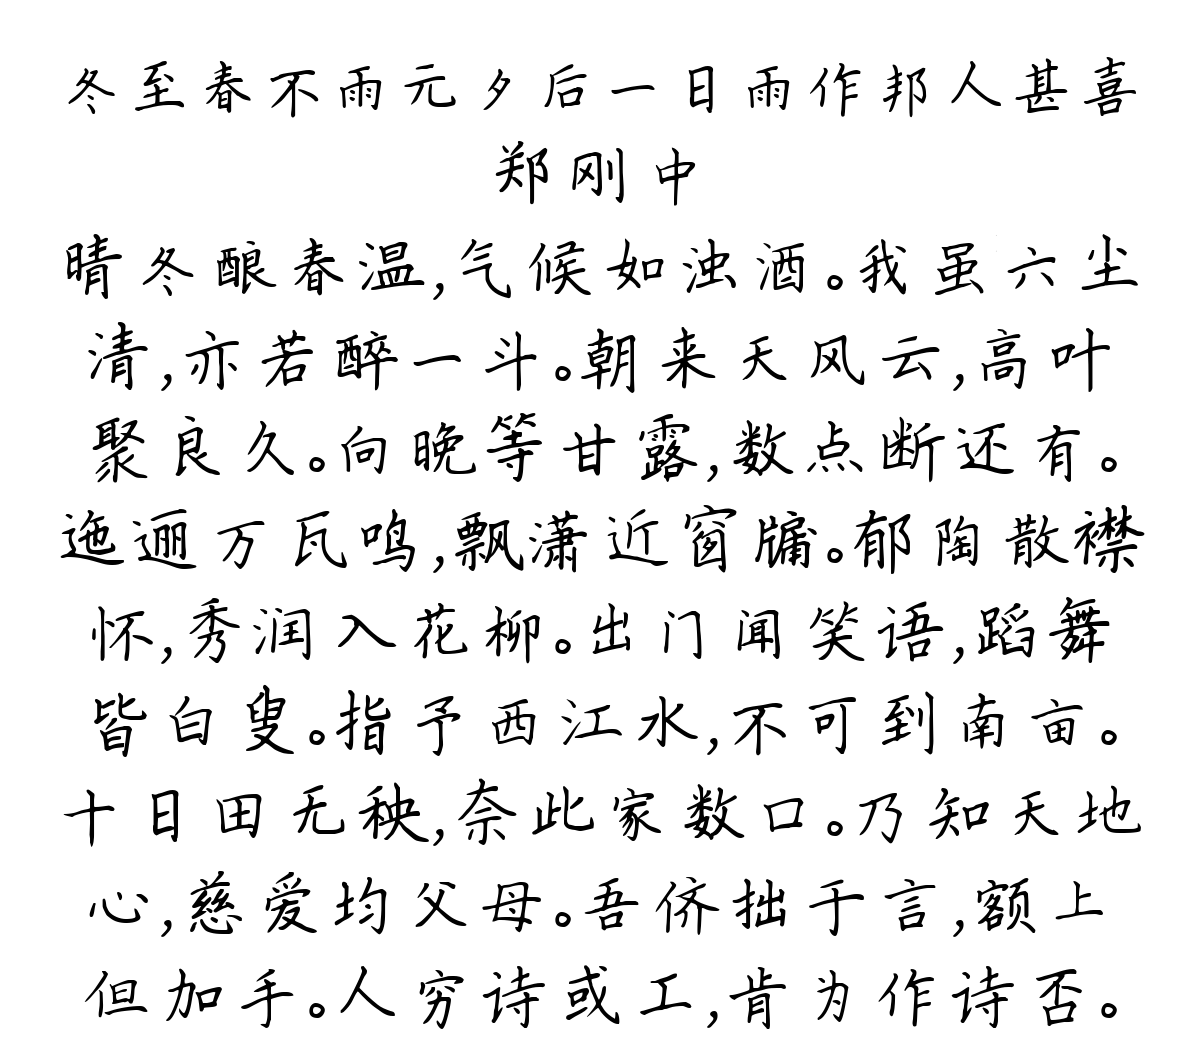 冬至春不雨元夕后一日雨作邦人甚喜
郑刚中
晴冬酿春温,气候如浊酒。我虽六尘
清,亦若醉一斗。朝来天风云,高叶
聚良久。向晚等甘露,数点断还有。
迤逦万瓦鸣,飘潇近窗牖。郁陶散襟
怀,秀润入花柳。出门闻笑语,蹈舞
皆白叟。指予西江水,不可到南亩。
十日田无秧,奈此家数口。乃知天地
心,慈爱均父母。吾侪拙于言,额上
但加手。人穷诗或工,肯为作诗否。